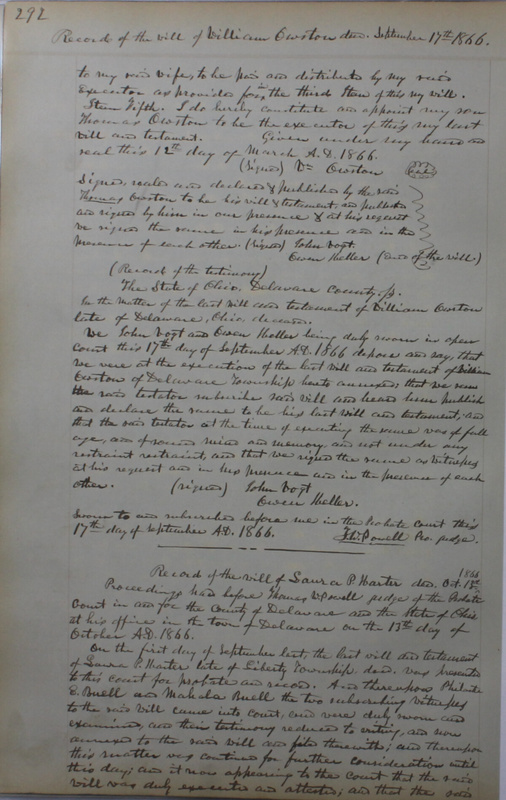 292
Record of the will of William Owston decd. September 17th 1866.
to my said wife, to be paid and distributed by my said
Executor as provided for in the third Item of this my will.
Item Fifth. I do hereby constitute and appoint my son
Thomas Owston to be the executor of this my last
will and testament. Given under my hand and
seal this 12th day of March A.D. 1866.
(Signed) Wm Owston Seal
Signed, sealed and declared & published by the said
Thomas Owston to be his will & testament, and published
and signed by him in our presence & at his request
we signed the same in his presence and in the
presence of each other. (signed) John Vogt.
Owen Sheller (end of the will.)
(Record of the testimony)
The State of Ohio, Delaware County, ss.
In the matter of the last will and testament of William Owston
late of Delaware, Ohio, deceased.
We John Vogt and Owen Sheller being duly sworn in open
Court this 17th day of September A.D. 1866 depose and say, that
we were at the execution of the last will and testament of William
Owston of Delaware Township hereto annexed; that we saw
the said testator subscribe said will and heard him publish
and declare the same to be his last will and testament; and
that the said testator at the time of executing the same was of full
age, and of sound mind and memory, and not under any
restraint restraint, and that we signed the same as witnesses
at his request and in his presence and in the presence of each
other. (signed) John Vogt
Owen Sheller.
Sworn to and subscribed before me in the Probate Court this
17th day of September A.D. 1866. Powell Pro. judge.
Record of the will of Laura P. Harter decd. Oct. 13th 1866
Proceedings had before Thomas W. Powell judge of the Probate
Court in and for the County of Delaware and the State of Ohio
at his office in the town of Delaware on the 13th day of
October A.D. 1866.
On the first day of September last, the last will and testament
of Laura P. Harter late of Liberty Township decd. was presented
to this court for probate and record. And thereupon
E. Buell and Mahala Buell the two subscribing witnesses
to the said will came into court, and were duly sworn and
examined, and their testimony reduced to writing, and now
annexed to the said will and filed therewith; and thereupon
this matter was continued for further consideration until
this day; and it now appearing to the Court that the said
will was duly executed and attested; and that the said